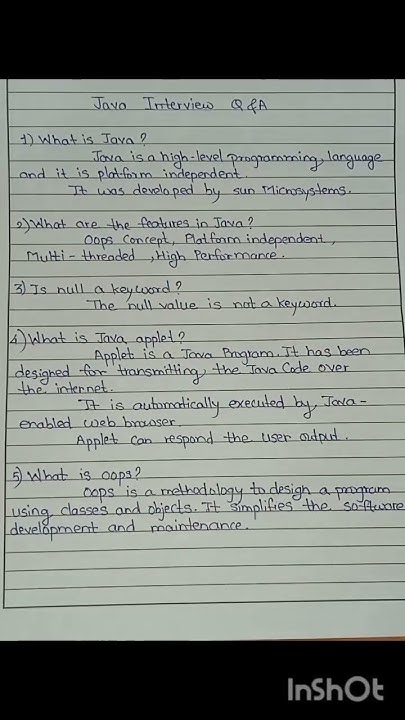 Java Interview Q&A
1) What is Java?
Java is a high-level programming language
and it is platform independent.
It was developed by sun Microsystems.
2) What are the features in Java?
Oops Concept, Platform independent,
Multi-threaded, High Performance.
3) Is null a keyword?
The null value is not a keyword.
4) What is Java applet?
Applet is a Java Program. It has been
designed for transmitting the Java Code over
the internet.
It is automatically executed by Java-
enabled web browser.
Applet can respond the user output.
5) What is oops?
Oops is a methodology to design a program
using classes and objects. It simplifies the software
development and maintenance.
InShOt